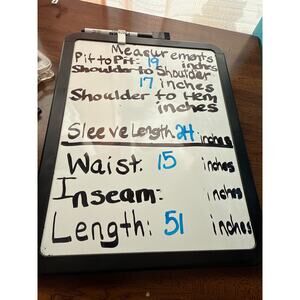 Measurements
Pit to Pit: 19 inches
Shoulder to Shoulder
17 inches
Shoulder to Hem
inches
Sleeve Length: 24 inches
Waist: 15 inches
Inseam: inches
Length: 51 inches